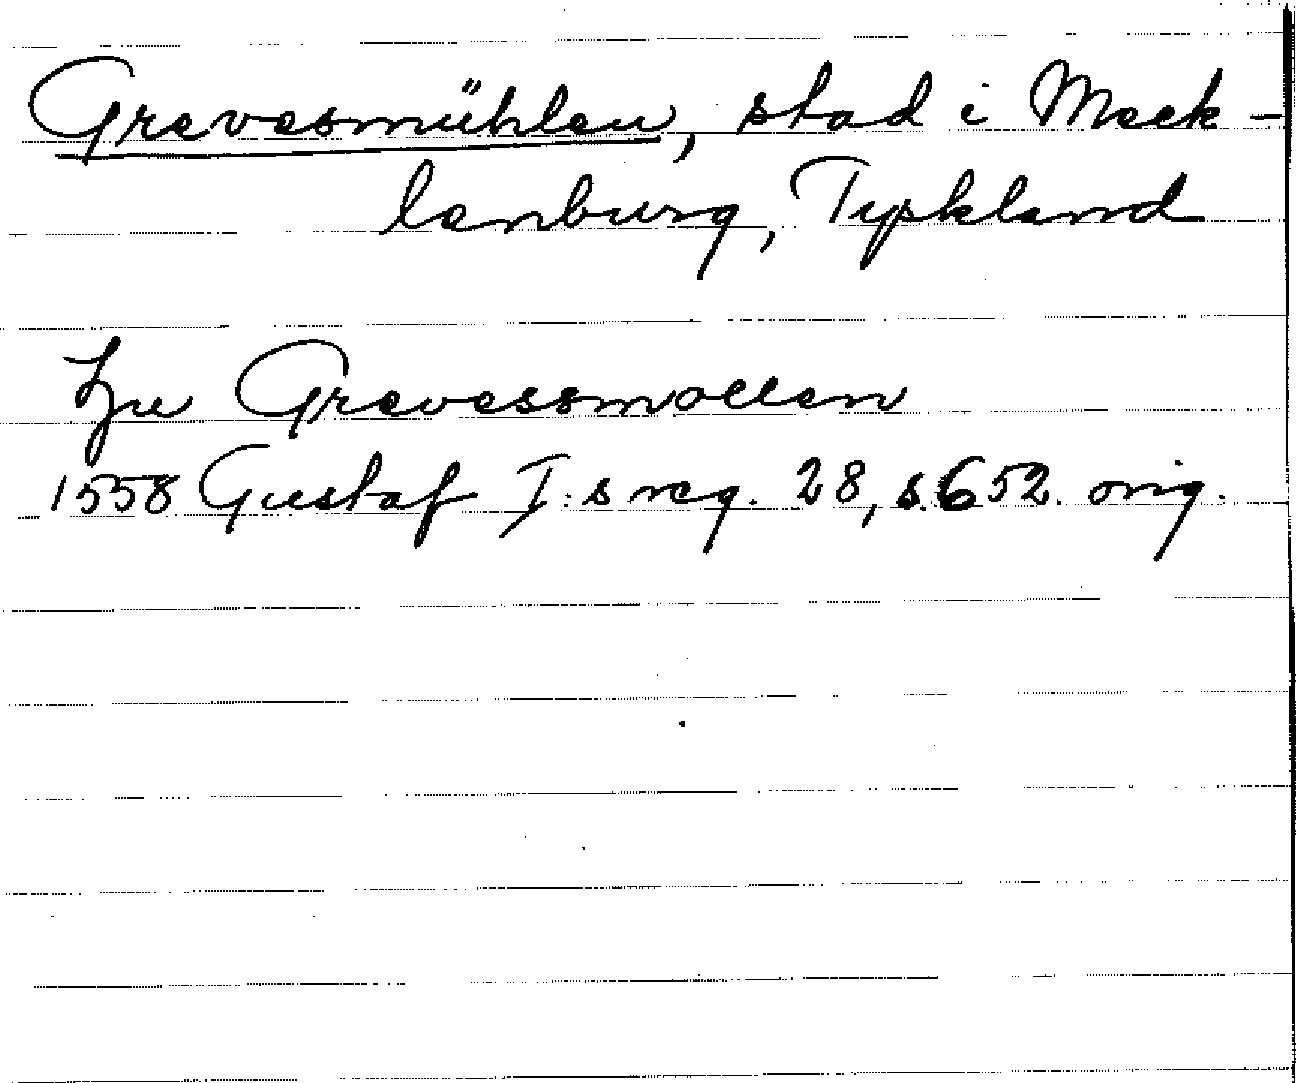 Grevesmühlen, stad i Meck-
lenburg, Tyskland
Zu Grevessmollen
1558 Gustaf I:s reg. 28, s. 652. orig.